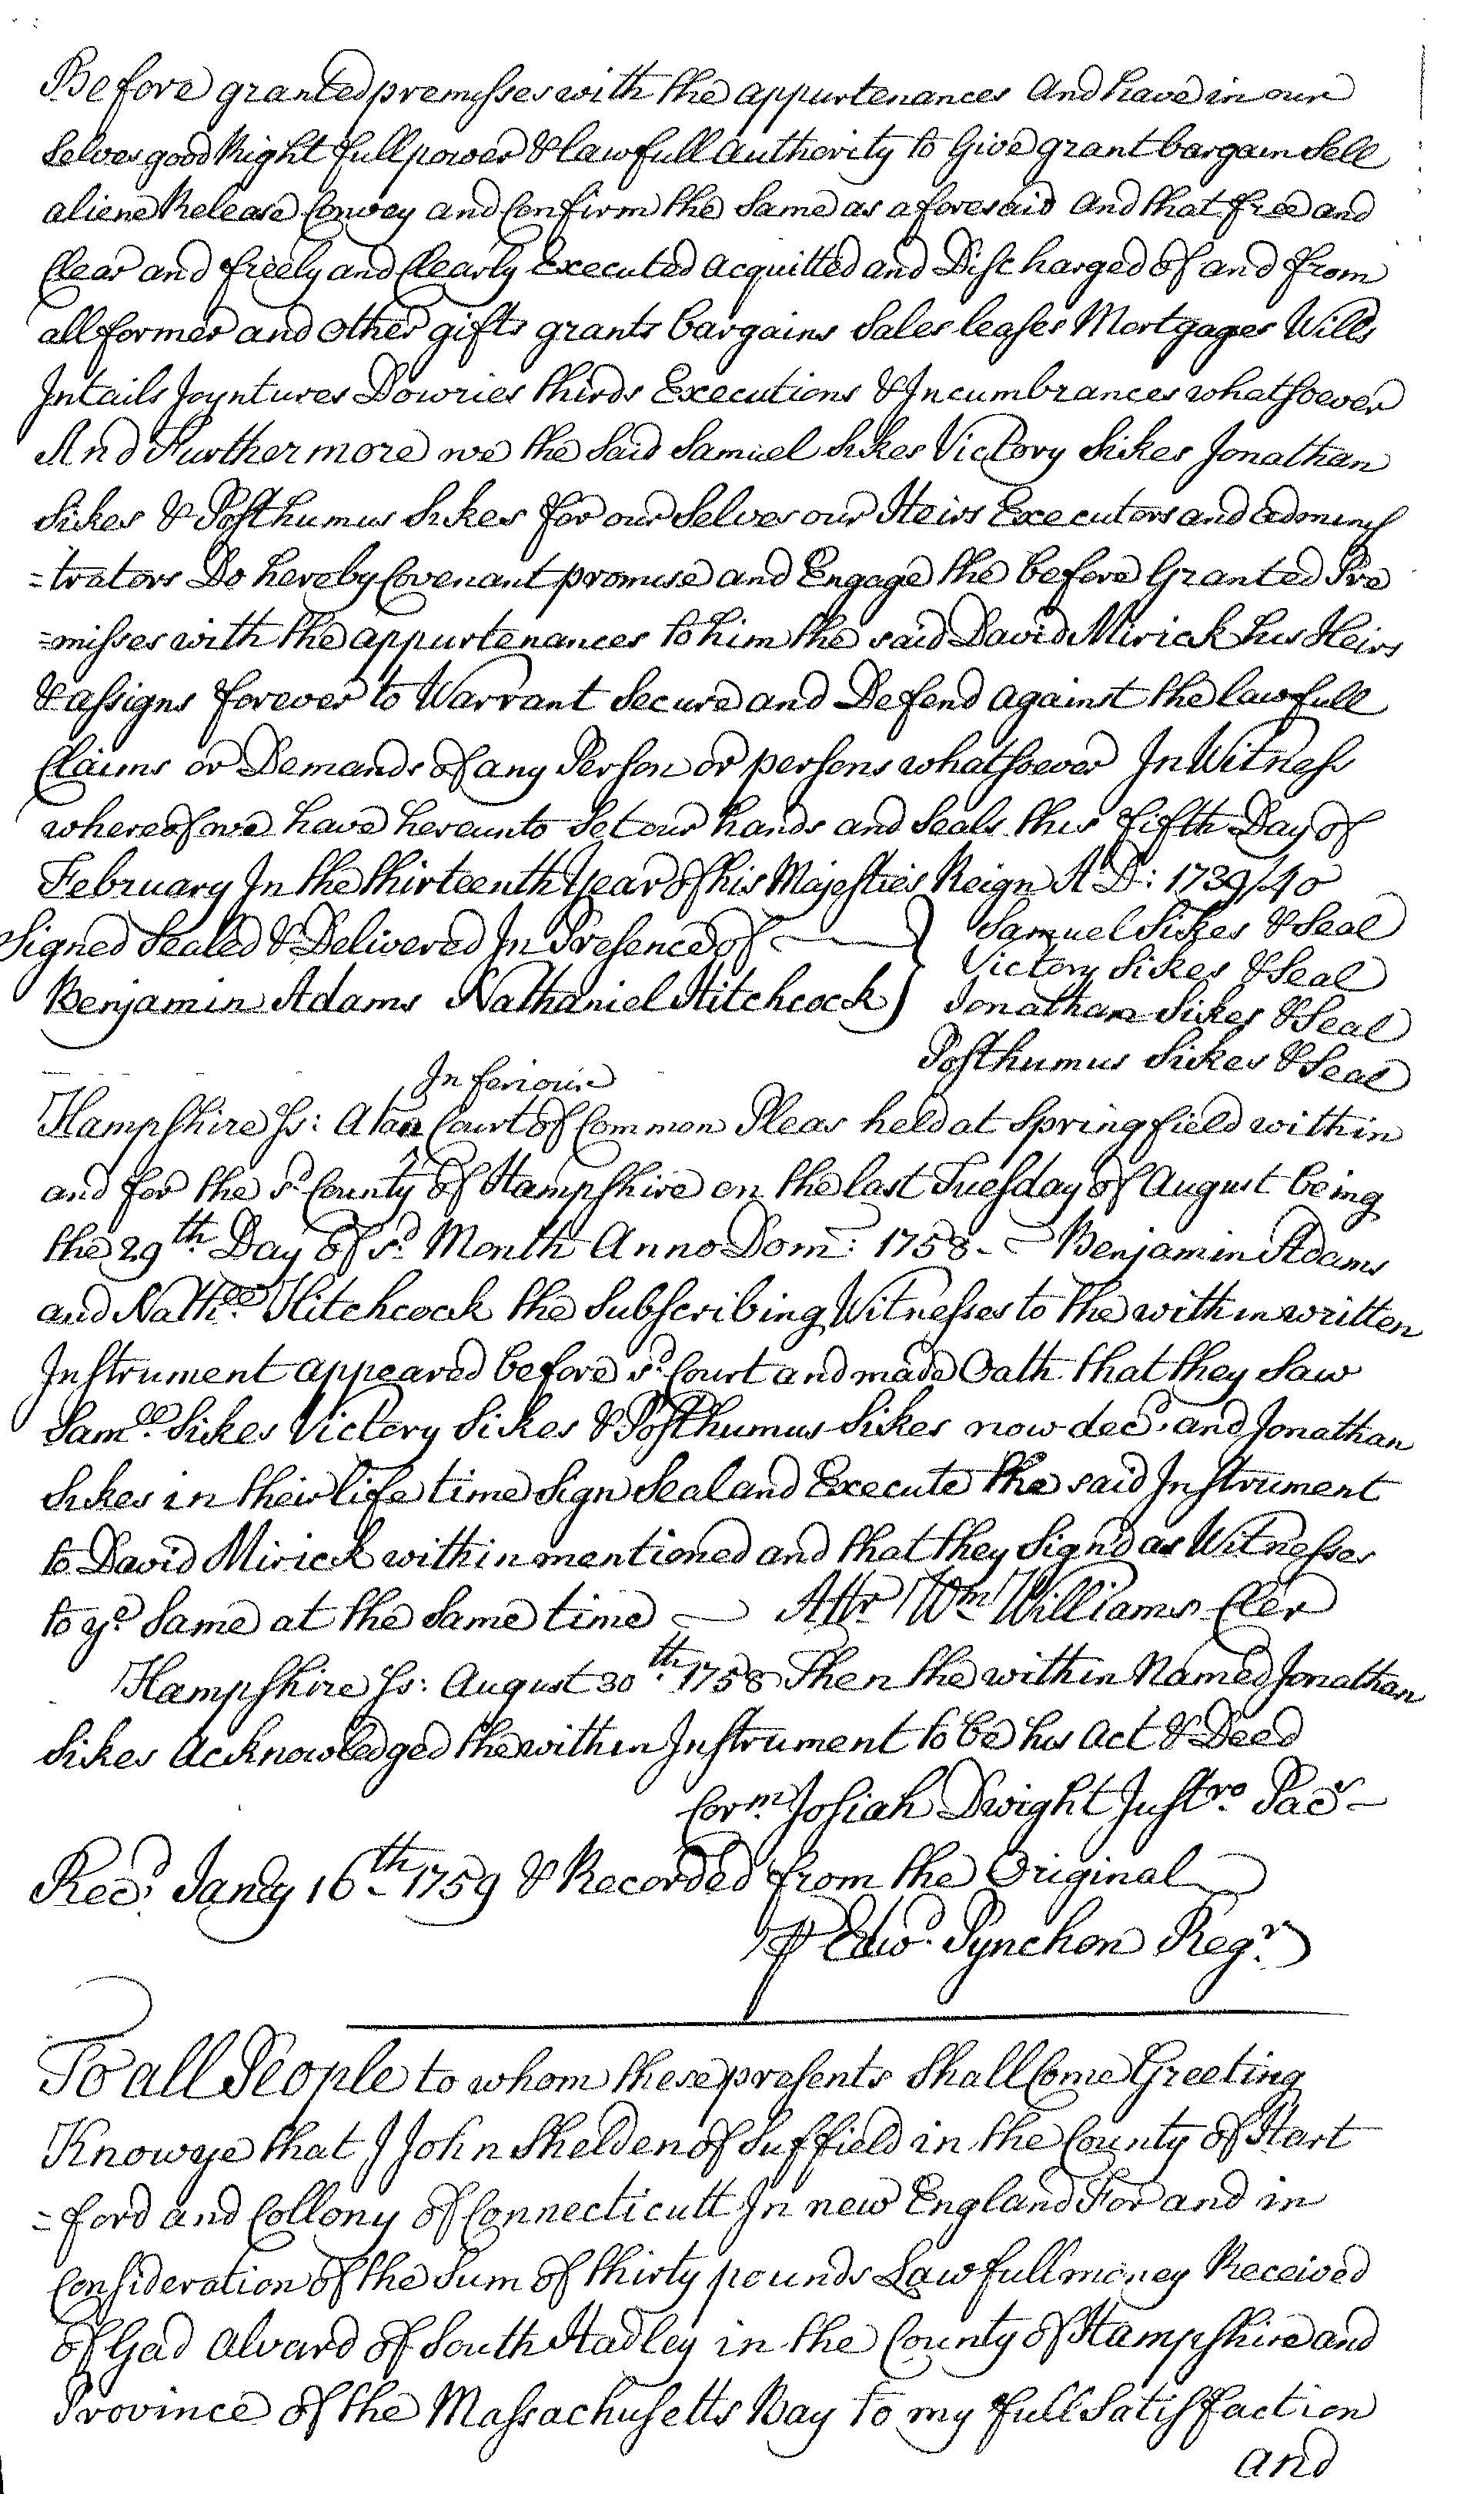 Before granted premisses with the appurtenances And have in our
selves good Right full power & lawfull authority to Give grant bargain Sell
aliene Release Convey and Confirm the Same as aforesaid And that free and
Clear and freely and Clearly Executed acquitted and Discharged of and from
all former and other gifts grants bargains Sales leases Mortgages Wills
Intails Joyntures Dowries thirds Executions & Incumbrances whatsoever
And Furthermore we the Said Samuel Sikes Victory Sikes Jonathan
Sikes & Posthumus Sikes for our Selves our Heirs Executors and adminis
=trators Do hereby Covenant promise and Engage the before Granted Pre
=misses with the appurtenances to him the said David Mirick his Heirs
& assigns forever to Warrant Secure and Defend against the lawfull
Claims or Demands of any Person or persons whatsoever In Witness
whereof we have hereunto Set our hands and Seals this fifth Day of
February In the thirteenth Year of his Majesties Reign A D: 1739/40
Signed Sealed & Delivered In Presence of } Samuel Sikes & Seal
Victory Sikes & Seal
Benjamin Adams Nathaniel Hitchcock } Jonathan Sikes & Seal
Posthumus Sikes & Seal
Inferiour
Hampshire Ss: At an Court of Common Pleas held at Springfield within
and for the sd County of Hampshire on the last Tuesday of August being
the 29th Day of sd Month Anno Dom: 1758 - Benjamin Adams
and Nathll Hitchcock the Subscribing Witnesses to the within written
Instrument appeared before sd Court and made Oath that they Saw
Samll Sikes Victory Sikes & Posthumus Sikes now decd and Jonathan
Sikes in their life time Sign Seal and Execute the said Instrument
to David Mirick within mentioned and that they Signd as Witnesses
to ye Same at the Same time — Attr Wm Williams Cler
Hampshire Ss: August 30th 1758 Then the within Named Jonathan
Sikes Acknowledged the within Instrument to be his Act & Deed
Corm Josiah Dwight Justre Pacs -
Recd Jany 16th 1759 & Recorded from the Original
P Edwd Pynchon Regr
To all People to whom these presents Shall Come Greeting
Know ye that I John Shelden of Suffield in the County of Hart
=ford and Collony of Connecticutt In new England For and in
Consideration of the Sum of thirty pounds Lawfull money Received
of Gad Alvard of South Hadley in the County of Hampshire and
Province of the Massachusetts Bay to my full Satisfaction
and